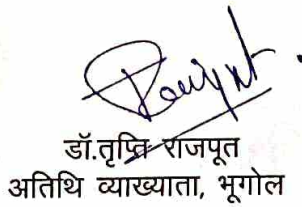 डॉ.तृप्ति राजपूत
अतिथि व्याख्याता, भूगोल